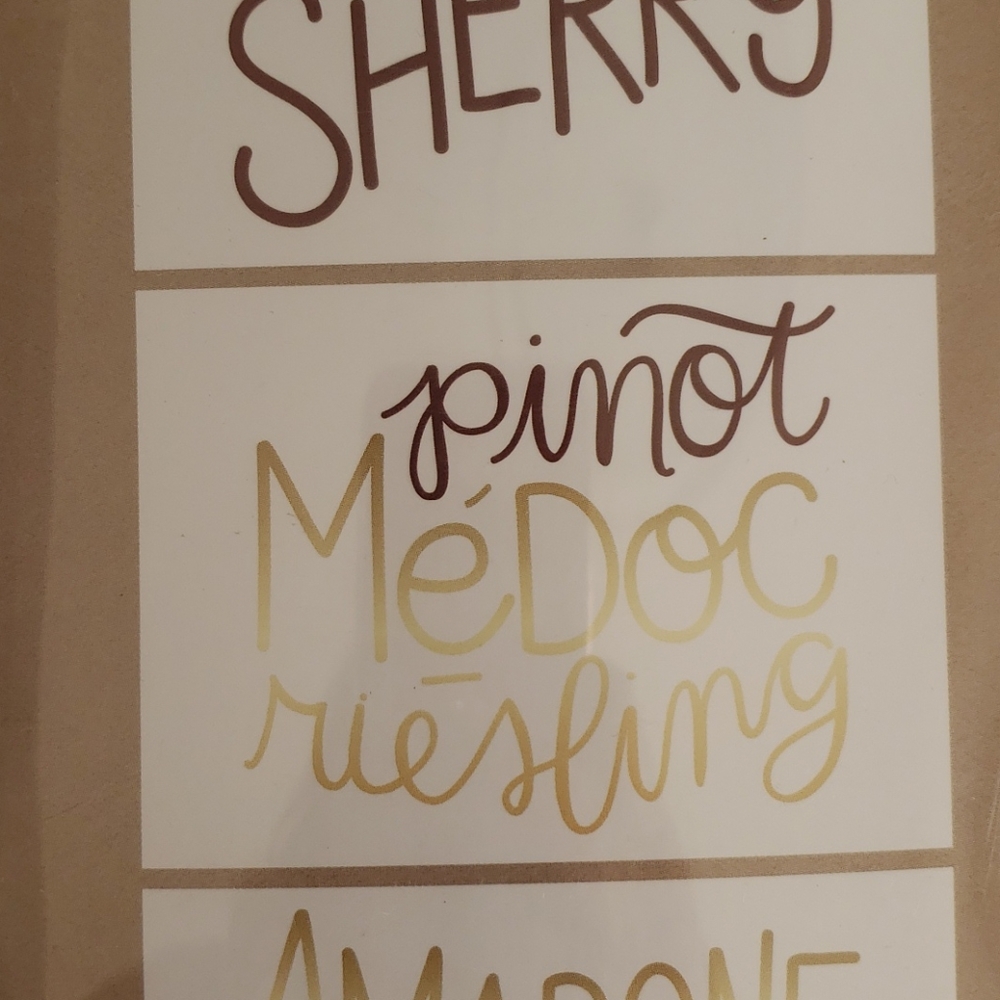 SHERRY
pinot
MéDOC
riesling
AMARONE